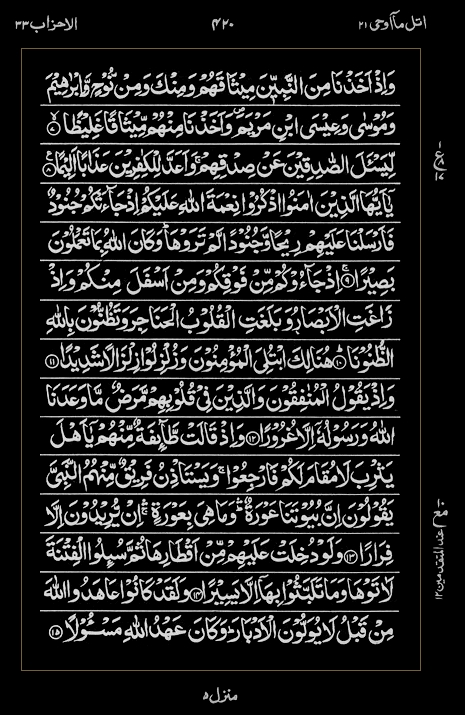 اتل مآ اوحی ۲۱
۴۲۰
الاحزاب ۳۳
وَاِذْ اَخَذْنَا مِنَ النَّبِيّٖنَ مِيْثَاقَهُمْ وَمِنْكَ وَمِنْ نُّوْحٍ وَّاِبْرٰهِيْمَ
وَمُوْسٰى وَعِيْسَى ابْنِ مَرْيَمَ ۪ وَاَخَذْنَا مِنْهُمْ مِّيْثَاقًا غَلِيْظًا ۙ‏ ﴿۷﴾
لِّيَسْـَٔلَ الصّٰدِقِيْنَ عَنْ صِدْقِهِمْ ۚ وَاَعَدَّ لِلْكٰفِرِيْنَ عَذَابًا اَلِيْمًا ﴿۸﴾
يٰۤاَيُّهَا الَّذِيْنَ اٰمَنُوا اذْكُرُوْا نِعْمَةَ اللّٰهِ عَلَيْكُمْ اِذْ جَآءَتْكُمْ جُنُوْدٌ
فَاَرْسَلْنَا عَلَيْهِمْ رِيْحًا وَّجُنُوْدًا لَّمْ تَرَوْهَا ؕ وَكَانَ اللّٰهُ بِمَا تَعْمَلُوْنَ
بَصِيْرًا ۚ ﴿۹﴾ اِذْ جَآءُوْكُمْ مِّنْ فَوْقِكُمْ وَمِنْ اَسْفَلَ مِنْكُمْ وَاِذْ
زَاغَتِ الْاَبْصَارُ وَبَلَغَتِ الْقُلُوْبُ الْحَنَاجِرَ وَتَظُنُّوْنَ بِاللّٰهِ
الظُّنُوْنَا ؕ ﴿۱۰﴾ هُنَالِكَ ابْتُلِىَ الْمُؤْمِنُوْنَ وَزُلْزِلُوْا زِلْزَالًا شَدِيْدًا ﴿۱۱﴾
وَاِذْ يَقُوْلُ الْمُنٰفِقُوْنَ وَالَّذِيْنَ فِىْ قُلُوْبِهِمْ مَّرَضٌ مَّا وَعَدَنَا
اللّٰهُ وَرَسُوْلُهٗۤ اِلَّا غُرُوْرًا ﴿۱۲﴾ وَاِذْ قَالَتْ طَّآئِفَةٌ مِّنْهُمْ يٰۤاَهْلَ
يَثْرِبَ لَا مُقَامَ لَكُمْ فَارْجِعُوْا ۚ وَيَسْتَاْذِنُ فَرِيْقٌ مِّنْهُمُ النَّبِىَّ
يَقُوْلُوْنَ اِنَّ بُيُوْتَنَا عَوْرَةٌ ۛؕ وَمَا هِىَ بِعَوْرَةٍ ۛۚ اِنْ يُّرِيْدُوْنَ اِلَّا
فِرَارًا ﴿۱۳﴾ وَلَوْ دُخِلَتْ عَلَيْهِمْ مِّنْ اَقْطَارِهَا ثُمَّ سُـِٕلُوا الْفِتْنَةَ
لَاٰتَوْهَا وَمَا تَلَبَّثُوْا بِهَاۤ اِلَّا يَسِيْرًا ﴿۱۴﴾ وَلَقَدْ كَانُوْا عَاهَدُوا اللّٰهَ
مِنْ قَبْلُ لَا يُوَلُّوْنَ الْاَدْبَارَ ؕ وَكَانَ عَهْدُ اللّٰهِ مَسْـُٔوْلًا ﴿۱۵﴾
عند المتقدمین ۱۲
منزل ۵